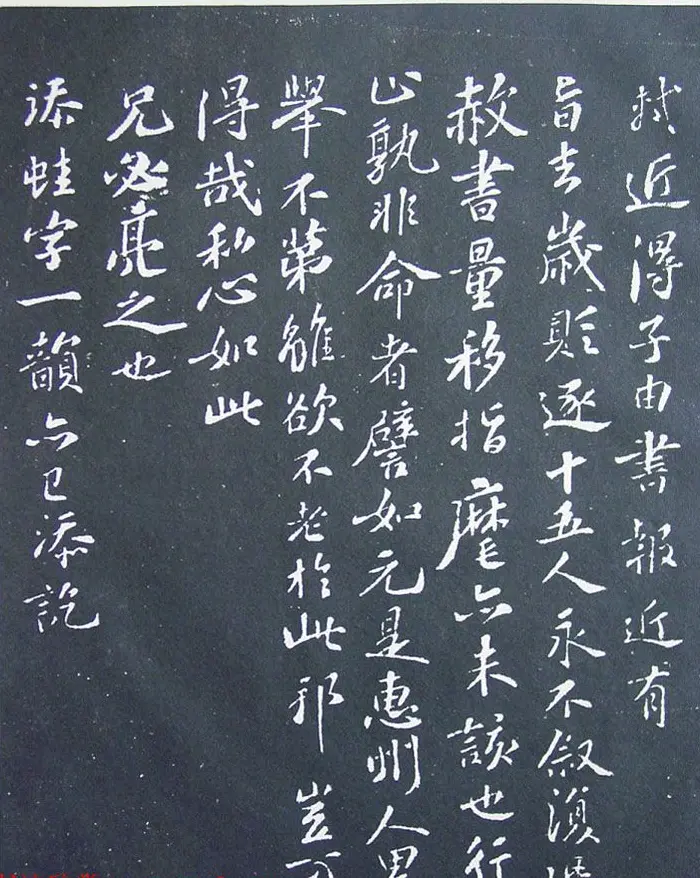 軾近得子由書報近有
旨去歲貶逐十五人永不叙
赦書量移指麾亦未該也行
止孰非命者譬如元是惠州人累
舉不第雖欲不老於此邪豈可
得哉私心如此
兄必亮之也
添蛙字一韻亦已添訖